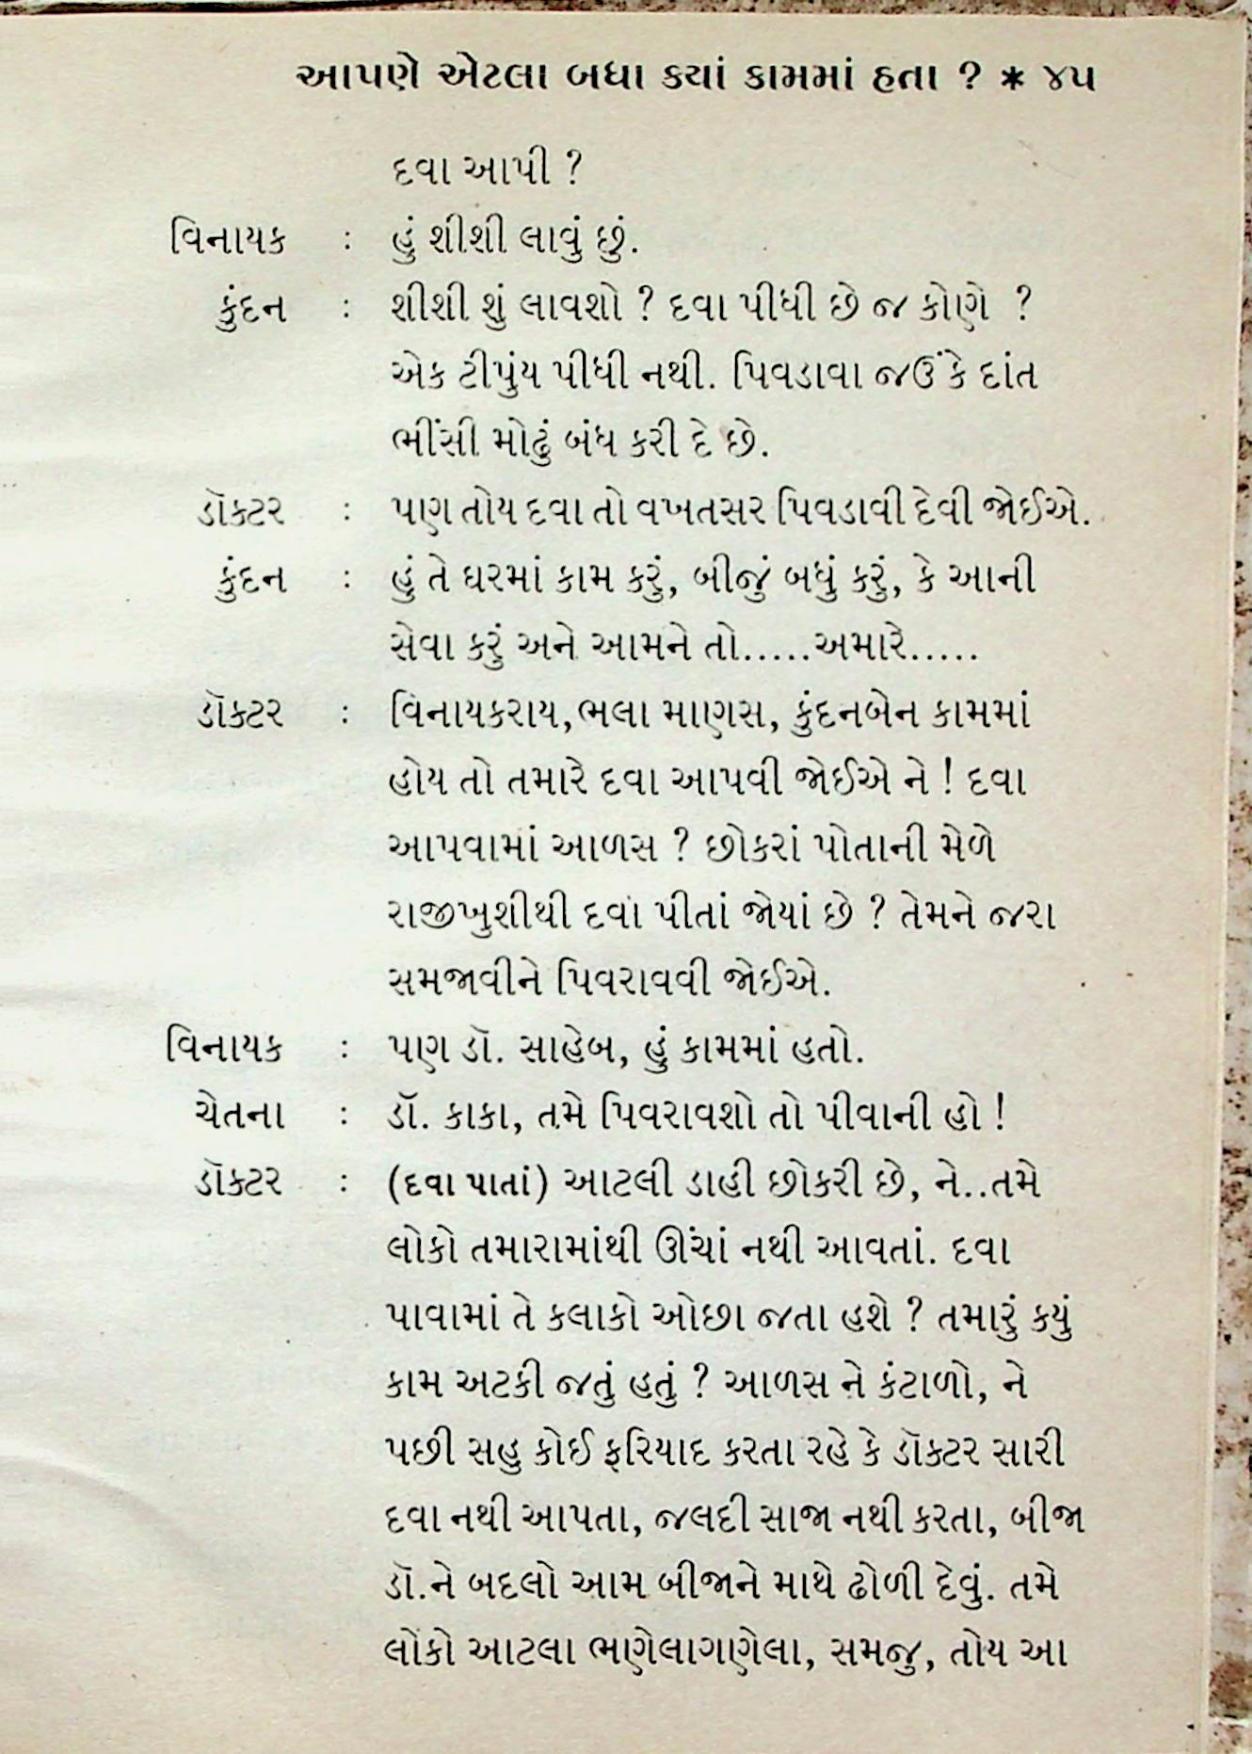 આપણે એટલા બધા કયાં કામમાં હતા ? * ૪૫
દવા આપી ?
વિનાયક : હું શીશી લાવું છું.
કુંદન : શીશી શું લાવશો ? દવા પીધી છે જ કોણે ?
એક ટીપુંય પીધી નથી. પિવડાવા જઉં કે દાંત
ભીંસી મોઢું બંધ કરી દે છે.
ડૉકટર : પણ તોય દવા તો વખતસર પિવડાવી દેવી જોઈએ.
કુંદન : હું તે ઘરમાં કામ કરું, બીજું બધું કરું, કે આની
સેવા કરું અને આમને તો.....અમારે.....
ડૉકટર : વિનાયકરાય,ભલા માણસ, કુંદનબેન કામમાં
હોય તો તમારે દવા આપવી જોઈએ ને ! દવા
આપવામાં આળસ ? છોકરાં પોતાની મેળે
રાજીખુશીથી દવા પીતાં જોયાં છે ? તેમને જરા
સમજાવીને પિવરાવવી જોઈએ.
વિનાયક : પણ ડૉ. સાહેબ, હું કામમાં હતો.
ચેતના : ડૉ. કાકા, તમે પિવરાવશો તો પીવાની હો !
ડૉકટર : (દવા પાતાં) આટલી ડાહી છોકરી છે, ને..તમે
લોકો તમારામાંથી ઊંચાં નથી આવતાં. દવા
પાવામાં તે કલાકો ઓછા જતા હશે ? તમારું કયું
કામ અટકી જતું હતું ? આળસ ને કંટાળો, ને
પછી સહુ કોઈ ફરિયાદ કરતા રહે કે ડૉકટર સારી
દવા નથી આપતા, જલદી સાજા નથી કરતા, બીજા
ડૉ.ને બદલો આમ બીજાને માથે ઢોળી દેવું. તમે
લોકો આટલા ભણેલાગણેલા, સમજુ, તોય આ